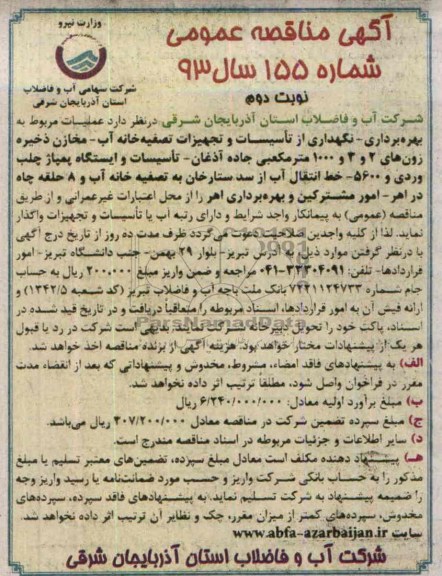 وزارت نیرو
شرکت سهامی آب و فاضلاب
استان آذربایجان شرقی
آگهی مناقصه عمومی
شماره ۱۵۵ سال ۹۳
نوبت دوم
شرکت آب و فاضلاب استان آذربایجان شرقی درنظر دارد عملیات مربوط به
بهره‌برداری - نگهداری از تأسیسات و تجهیزات تصفیه‌خانه آب - مخازن ذخیره
زون‌های ۲ و ۳ و ۱۰۰۰ مترمکعبی جاده آذغان - تأسیسات و ایستگاه پمپاژ چلب
وردی و ۵۶۰۰ - خط انتقال آب از سد ستارخان به تصفیه خانه آب و ۸ حلقه چاه
در اهر - امور مشترکین و بهره‌برداری اهر را از محل اعتبارات غیرعمرانی و از طریق
مناقصه (عمومی) به پیمانکار واجد شرایط و دارای رتبه آب یا تأسیسات و تجهیزات واگذار
نماید. لذا از کلیه واجدین صلاحیت دعوت می‌گردد ظرف مدت ده روز از تاریخ درج آگهی
با درنظر گرفتن موارد ذیل به آدرس تبریز - بلوار ۲۹ بهمن - جنب دانشگاه تبریز - امور
قراردادها - تلفن: ۳۳۳۰۴۰۹۱-۰۴۱ مراجعه و ضمن واریز مبلغ ۲۰۰,۰۰۰ ریال به حساب
جام شماره ۷۲۳۱۱۲۴۷۳۳ بانک ملت باجه آب و فاضلاب تبریز (کد شعبه ۱۳۴۲/۵) و
ارائه فیش آن به امور قراردادها، اسناد مربوطه را متعاقباً دریافت و در تاریخ قید شده در
اسناد، پاکت خود را تحویل دبیرخانه شرکت نمایند. بدیهی است شرکت در رد یا قبول
هر یک از پیشنهادات مختار خواهد بود. هزینه آگهی از برنده مناقصه اخذ خواهد شد.
الف) به پیشنهادهای فاقد امضاء، مشروط، مخدوش و پیشنهاداتی که بعد از انقضاء مدت
مقرر در فراخوان واصل شود، مطلقاً ترتیب اثر داده نخواهد شد.
ب) مبلغ برآورد اولیه معادل: ۶/۲۴۰/۰۰۰/۰۰۰ ریال
ج) مبلغ سپرده تضمین شرکت در مناقصه معادل ۳۰۷/۲۰۰/۰۰۰ ریال می‌باشد.
د) سایر اطلاعات و جزئیات مربوطه در اسناد مناقصه مندرج است.
هـ) پیشنهاد دهنده مکلف است معادل مبلغ سپرده، تضمین‌های معتبر تسلیم یا مبلغ
مذکور را به حساب بانکی شرکت واریز و حسب مورد ضمانت‌نامه یا رسید واریز وجه
را ضمیمه پیشنهاد به شرکت تسلیم نماید. به پیشنهادهای فاقد سپرده، سپرده‌های
مخدوش، سپرده‌های کمتر از میزان مقرر، چک و نظایر آن ترتیب اثر داده نخواهد شد.
سایت www.abfa-azarbaijan.ir
شرکت آب و فاضلاب استان آذربایجان شرقی